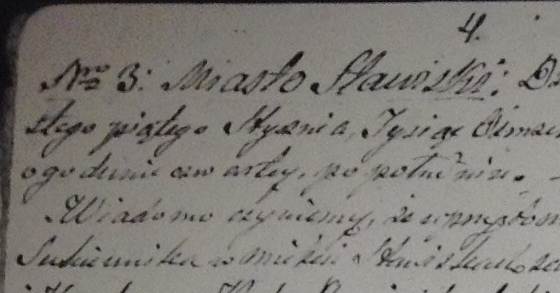 4.
No 3: Miasto Stawiski: D
stego piątego Stycznia, Tysiąc Ośmse
o godzinie czwartey, po południu.
Wiadomo czyniemy, że w przytom
Sukiennika w mieście Stawiskach